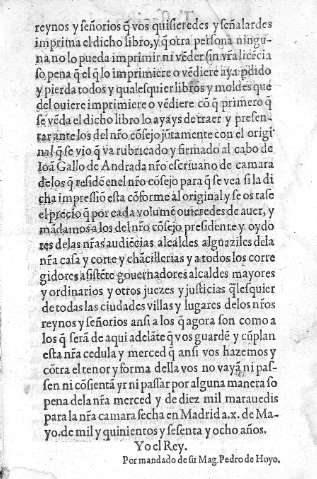 reynos y señorios q̃ vos quisieredes y señalardes
imprima el dicho libro, y q̃ otra persona ningu-
na no lo pueda imprimir ni vẽder sin vr̃a licẽcia
so pena q̃ el q̃ lo imprimiere o vẽdiere aya pdido
y pierda todos y qualesquier libros y moldes que
del ouiere imprimiere o vẽdiere cõ q̃ primero q̃
se vẽda el dicho libro lo ayays de traer y presen-
tar ante los del nr̃o cõsejo jũtamente con el origi
nal q̃ se vio q̃ va rubricado y firmado al cabo de
Ioã Gallo de Andrada nr̃o escriuano de camara
de los q̃ residẽ en el nr̃o cõsejo para q̃ se vea si la di
cha impressiõ esta cõforme al original y se os tase
el precio q̃ por cada volumẽ ouieredes de auer, y
mãdamos a los del nr̃o cõsejo presidente y oydo
res de las nr̃as audiẽcias alcaldes alguaziles de la
nr̃a casa y corte y chãcillerias y a todos los corre
gidores asistẽte gouernadores alcaldes mayores
y ordinarios y otros juezes y justicias q̃lesquier
de todas las ciudades villas y lugares de los nr̃os
reynos y señorios ansi a los q̃ agora son como a
los q̃ serã de aqui adelãte q̃ vos guardẽ y cũplan
esta nr̃a cedula y merced q̃ ansi vos hazemos y
cõtra el tenor y forma della vos no vayã ni pas-
sen ni cõsientã yr ni passar por alguna manera so
pena de la nr̃a merced y de diez mil marauedis
para la nr̃a camara fecha en Madrid a.x. de Ma-
yo. de mil y quinientos y sesenta y ocho años.
Yo el Rey.
Por mandado de su Mag. Pedro de Hoyo.